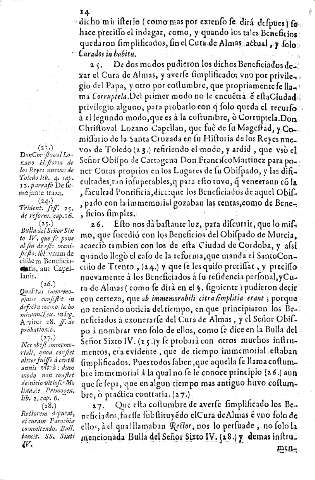 14
dicho misterio (como mas por extenso se dirá despues) se
hace precisso el indagar, como, y quando los tales Beneficios
quedaron simplificados, sin el Cura de Almas actual, y solo
Curados in habitu.
25. De dos modos pudieron los dichos Beneficiados de-
xar el Cura de Almas, y averse simplificado; vno por privile-
gio del Papa, y otro por costumbre, que propriamente se lla-
ma Corruptela. Del primer modo no le encuentra esta Ciudad
privilegio alguno, para probarlo con que solo queda el recurso
à el segundo modo, que es à la costumbre, ò Corruptela. Don
Christoval Lozano Capellan, que fuè de su Magestad, y Co-
missario de la Santa Cruzada en su Historia de los Reyes nue-
vos de Toledo (23.) refiriendo el modo, y ardid, que vsò el
Señor Obispo de Cartagena Don Francisco Martinez para po-
ner Curas proprios en los Lugares de su Obispado, y las difi-
cultades, y repugnancias, y para esto tuvo, q̃ veneraron cõ la
facultad Pontificia, dice; que los Beneficiados de aquel Obis-
pado con la immemorial gozaban las rentas, como de Bene-
ficios simples.
26. Esto nos dà bastante luz, para discurrir, que lo mis-
mo, que sucediò con los Beneficios del Obispado de Murcia,
acaeciò tambien con los de esta Ciudad de Cordoba, y assi
quando llegò el caso de la reforma, que manda el Santo Con-
cilio de Trento, (24.) y que se les quiso precissar, y precisso
nuevamente à los Beneficiados à su residencia personal, y Cu-
ra de Almas (como se dirà en el §. siguiente) pudieron decir
con certeza, que ab immemorabili citra simplitia erant; porque
no teniendo noticia del tiempo, en que principiaron los Be-
neficiados à exonerarse del Cura de Almas, y el Señor Obis-
po à nombrar vno solo de ellos, como se dice en la Bulla del
Señor Sixto IV. (25.) y se probarà con otros muchos instru-
mentos, era evidente, que de tiempo immemorial estaban
simplificados. Pues todos saben, que aquella se llama costum-
bre immemorial à la qual no se le conoce principio (26.) aun
que se sepa, que en algun tiempo mas antiguo huvo costum-
bre, ò practica contraria. (27.)
27. Que esta costumbre de averse simplificado los Be-
neficiados, fuesse substituyẽdo el Cura de Almas è vno solo de
ellos, à el qual llamaban Rector, nos lo persuade, no solo la
mencionada Bulla del Señor Sixto IV. (28.) y demas instru-
men-
(23.)
Don Christoval Lo-
zano el supra de
los Reyes nuevos de
Toledo lib. 4. cap.
(24.)
Trident. sess. 25.
de reform. cap. 16.
(25.)
Bulla del Señor Six-
to IV.
(26.)
(27.)
lib. 2. cap. 6.
(28.)
IV.